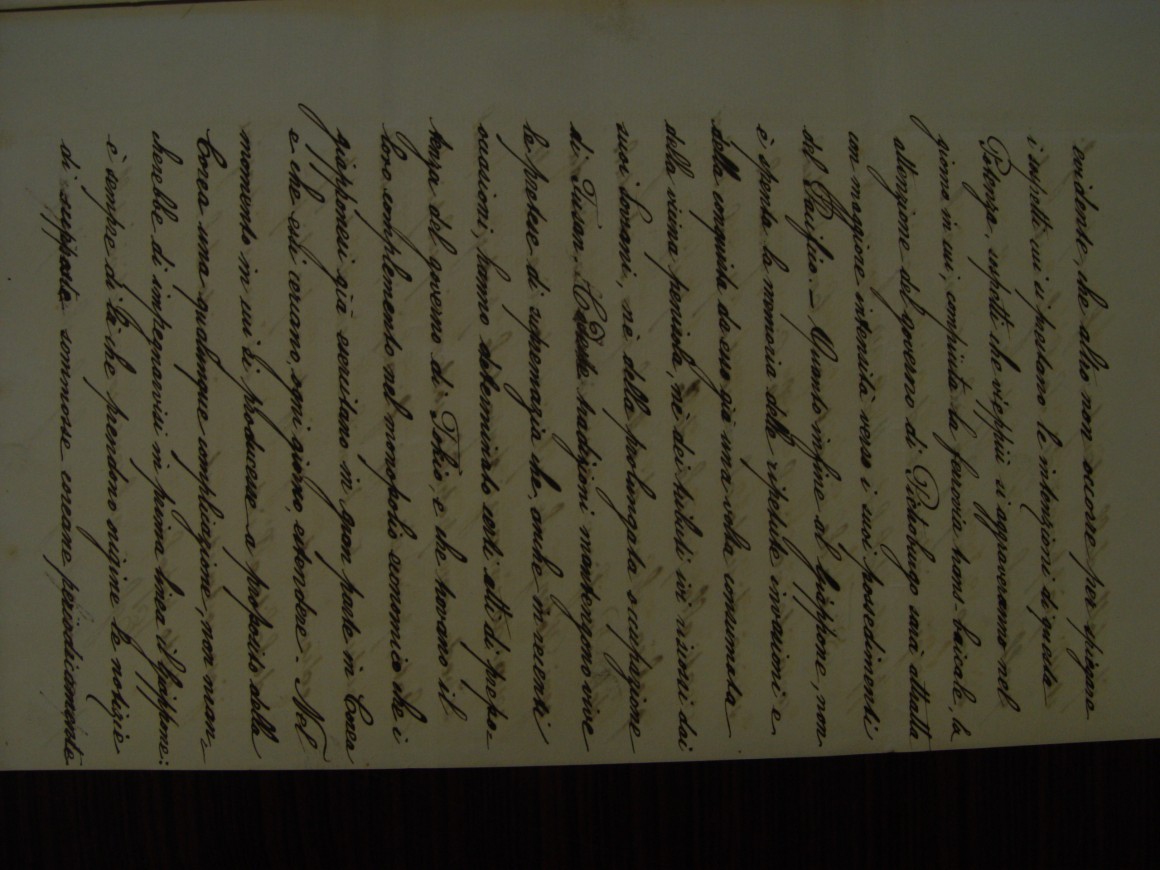 evidente, che altro non occorre per spiegare
i sospetti cui ci portano le intenzioni di questa
Potenza, sospetti che vieppiù si aggraveranno nel
giorno in cui, compiuta la ferrovia trans-baicale, la
attenzione del governo di Pietroburgo sarà attratta
con maggiore intensità verso i suoi possedimenti
del Pacifico. – Quanto infine al Giappone, non
è spenta la memoria delle ripetute invasioni e
della conquista da esso già una volta consumata
della vicina penisola, nè dei tributi ivi riscossi dai
suoi Sovrani, nè della prolungata occupazione
di Fusan. Codeste tradizioni mantengono vive
le pretese di supremazia che, anche in recenti
occasioni, hanno determinato certi atti di prepo-
tenza del governo di Tokio, e che trovano il
loro complemento nel monopolio economico che i
giapponesi già esercitano in gran parte in Corea
e che essi cercano, ogni giorno, estendere. Nel
momento in cui si producesse a proposito della
Corea una qualunque complicazione, non man-
cherebbe di impegnarvisi in prima linea il Giappone:
è sempre di là che prendono origine le notizie
di supposte sommosse coreane periodicamente